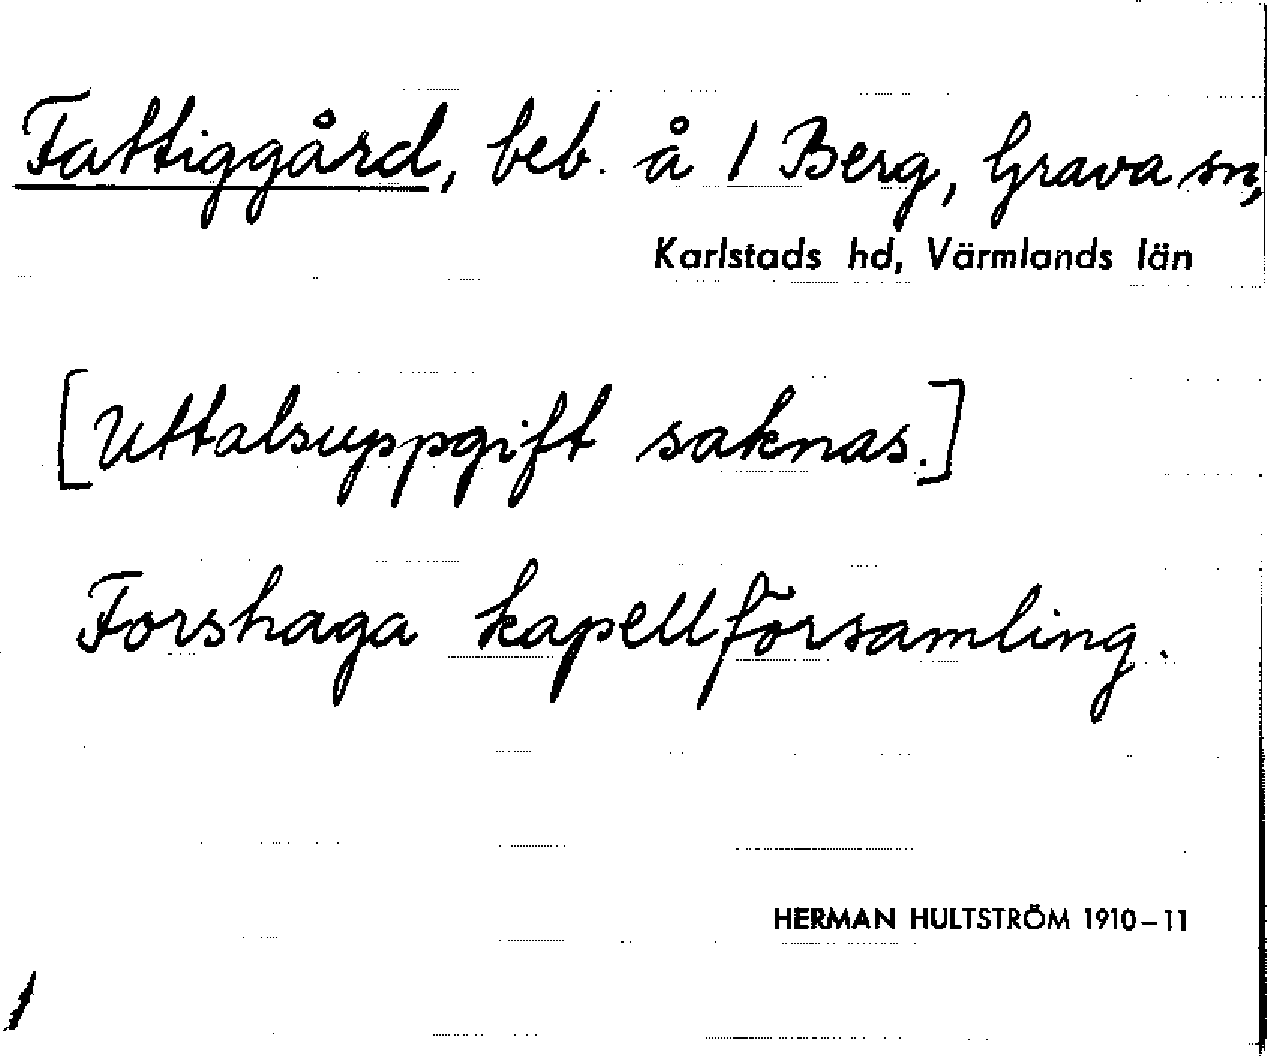 Fattiggård, beb. å 1 Berg, Grava sn,
Karlstads hd, Värmlands län
[Uttalsuppgift saknas.]
Forshaga kapellförsamling.
HERMAN HULTSTRÖM 1910–11